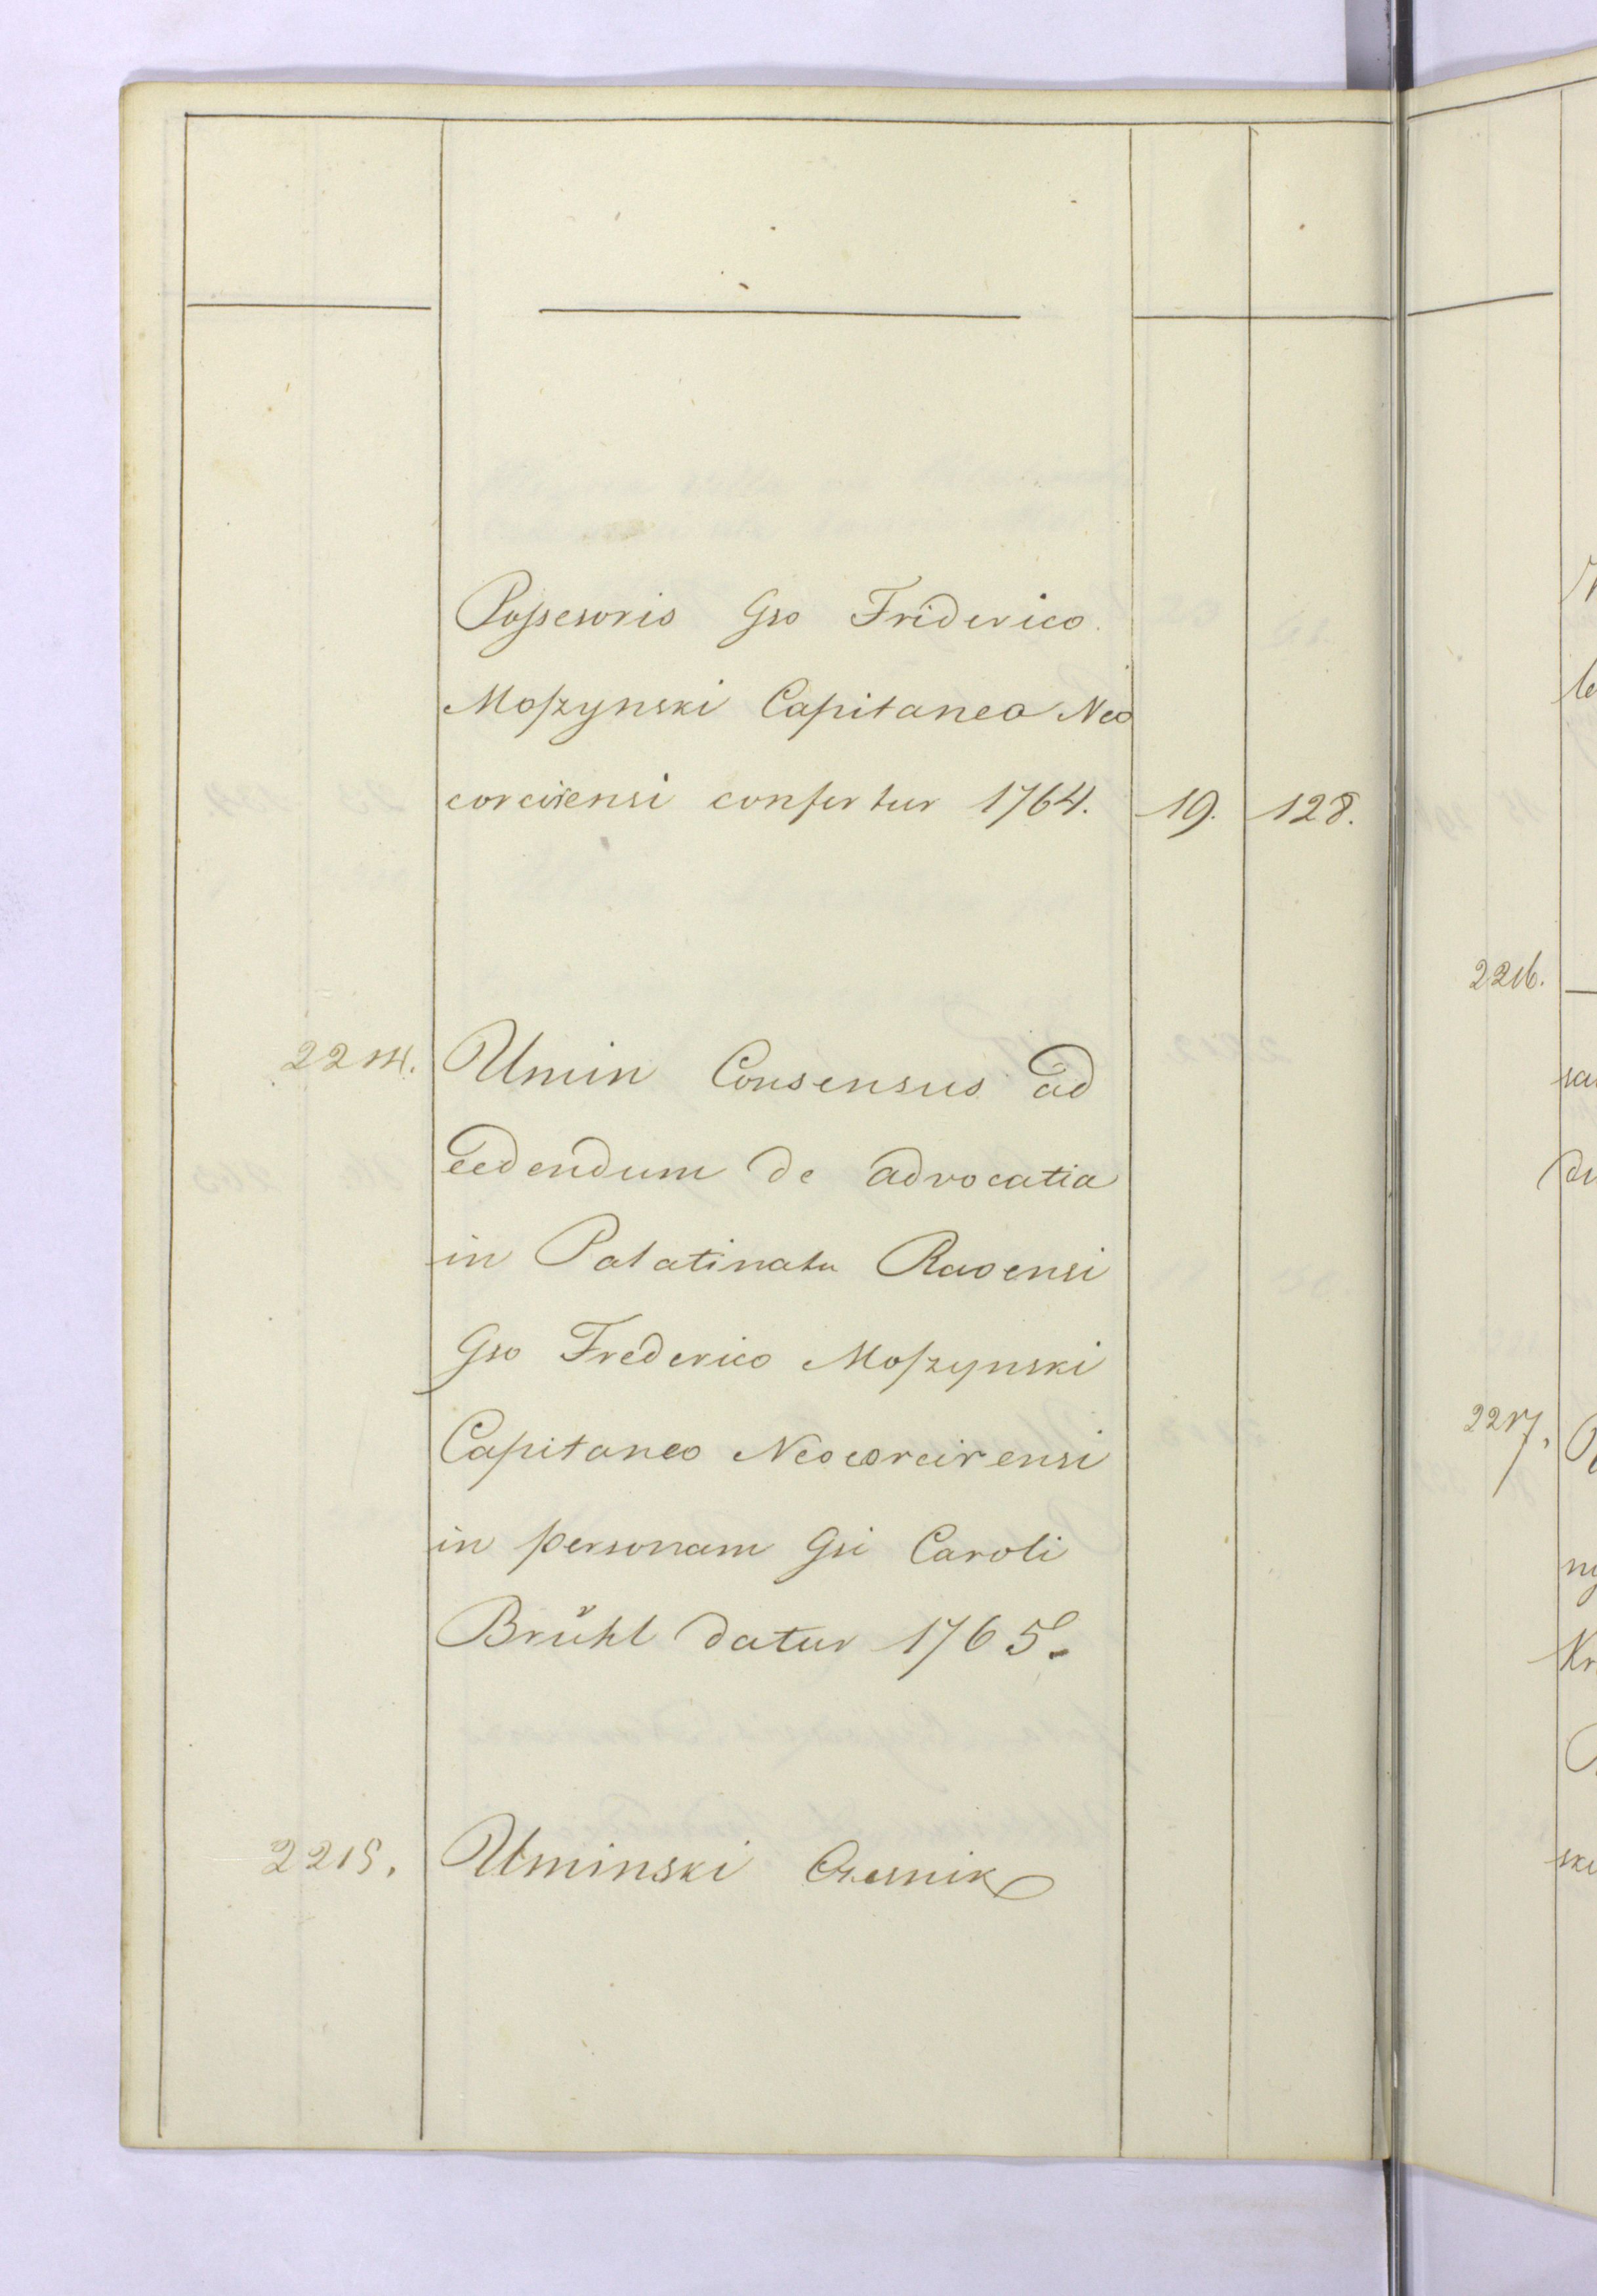 Possesoris Gso Friderico
Moszynski Capitaneo Neo
corcirensi confertur 1764. 19. 128.
2214. Umin Consensus ad
cedendum de advocatia
in Palatinatu Ravensi
Gso Frederico Moszynski
Capitaneo Neocorcirensi
in personam Gsi Caroli
Brühl datur 1765.
2215. Uminski Czesnik
2216.
2217.